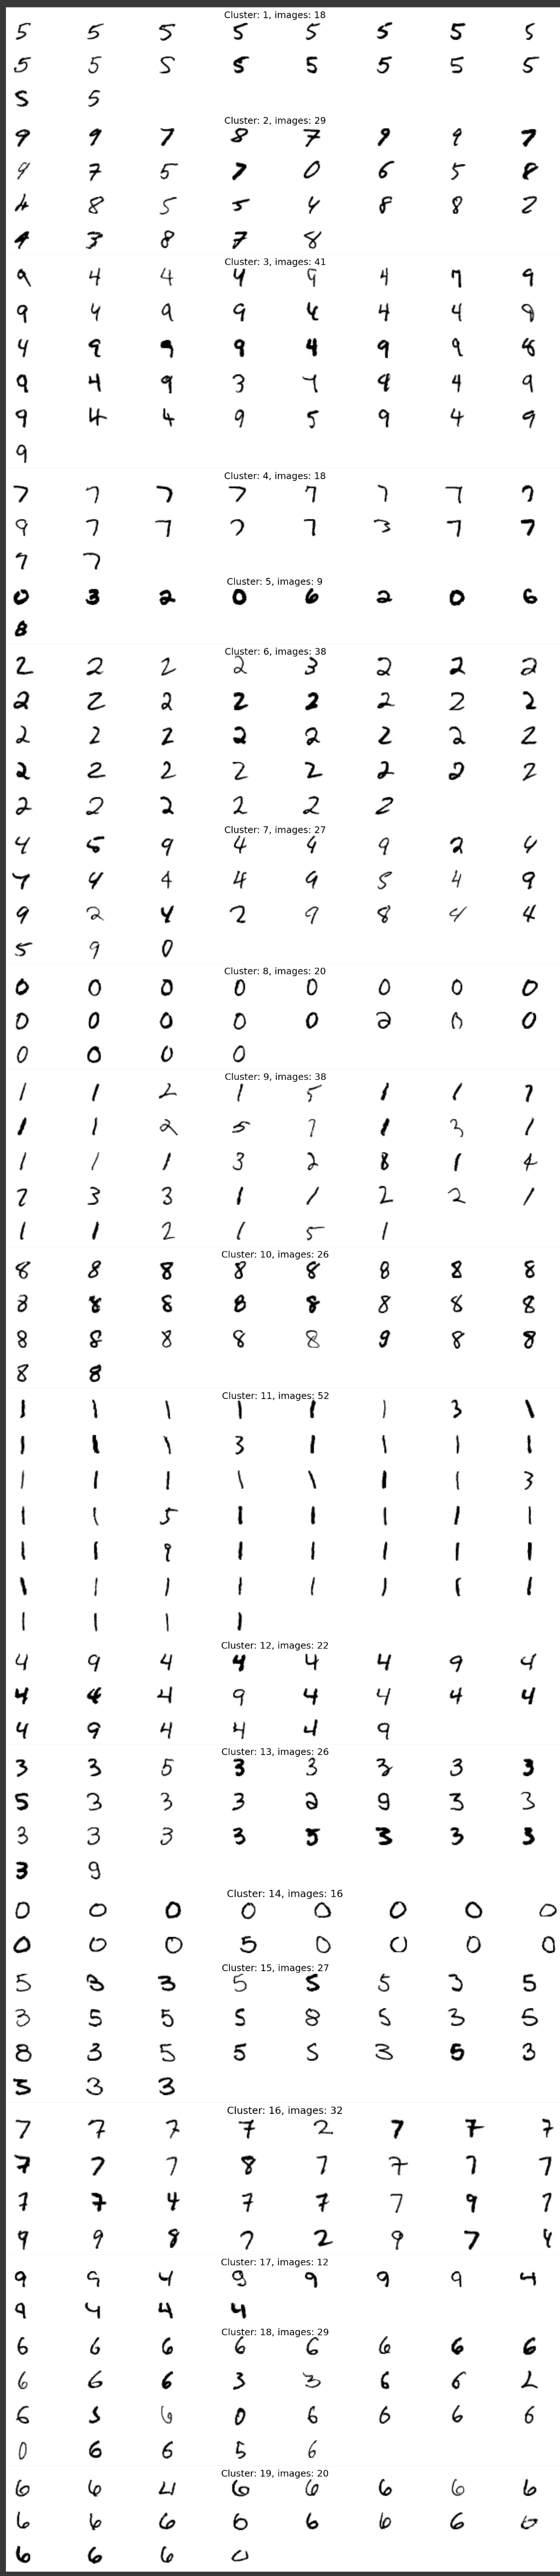 Cluster: 1, images: 18
5 5 5 5 5 5 5 5
5 5 5 5 5 5 5 5
5 5
Cluster: 2, images: 29
9 9 7 8 7 9 9 7
9 7 5 7 0 6 5 8
4 8 5 5 4 8 8 2
4 3 8 7 8
Cluster: 3, images: 41
9 4 4 4 9 4 7 9
9 4 9 9 4 4 4 9
4 9 9 9 4 9 9 8
9 4 9 3 7 9 4 9
9 4 4 9 5 9 4 9
9
Cluster: 4, images: 18
7 7 7 7 7 7 7 7
9 7 7 7 7 3 7 7
7 7
Cluster: 5, images: 9
0 3 2 0 6 2 0 6
8
Cluster: 6, images: 38
2 2 2 2 3 2 2 2
2 2 2 2 2 2 2 2
2 2 2 2 2 2 2 2
2 2 2 2 2 2 2 2
2 2 2 2 2 2
Cluster: 7, images: 27
4 5 9 4 4 9 2 4
7 4 4 4 9 5 4 9
9 2 4 2 9 8 4 4
5 9 0
Cluster: 8, images: 20
0 0 0 0 0 0 0 0
0 0 0 0 0 2 0 0
0 0 0 0
Cluster: 9, images: 38
1 1 2 1 5 1 1 7
1 1 2 5 7 1 3 1
1 1 1 3 2 8 1 4
2 3 3 1 1 2 2 1
1 1 2 1 5 1
Cluster: 10, images: 26
8 8 8 8 8 8 8 8
8 8 8 8 8 8 8 8
8 8 8 8 8 9 8 8
8 8
Cluster: 11, images: 52
1 1 1 1 1 1 3 1
1 1 1 3 1 1 1 1
1 1 1 1 1 1 1 3
1 1 5 1 1 1 1 1
1 1 9 1 1 1 1 1
1 1 1 1 1 1 1 1
1 1 1 1
Cluster: 12, images: 22
4 9 4 4 4 4 9 4
4 4 4 9 4 4 4 4
4 9 4 4 4 9
Cluster: 13, images: 26
3 3 5 3 3 3 3 3
5 3 3 3 2 9 3 3
3 3 3 3 5 3 3 3
3 9
Cluster: 14, images: 16
0 0 0 0 0 0 0 0
0 0 0 5 0 0 0 0
Cluster: 15, images: 27
5 3 3 5 5 5 3 5
3 5 5 5 8 5 3 5
8 3 5 5 5 3 5 3
5 3 3
Cluster: 16, images: 32
7 7 7 7 2 7 7 7
7 7 7 8 7 7 7 7
7 7 4 7 7 7 9 7
9 9 8 7 2 9 7 4
Cluster: 17, images: 12
9 9 4 9 9 9 9 4
9 4 4 4
Cluster: 18, images: 29
6 6 6 6 6 6 6 6
6 6 6 3 3 6 6 2
6 5 6 0 6 6 6 6
0 6 6 5 6
Cluster: 19, images: 20
6 6 4 6 6 6 6 6
6 6 6 6 6 6 6 0
6 6 6 0